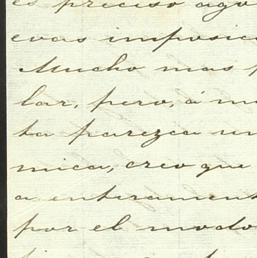 es preciso ago
evas imposic
Mucho mas p
lar, pero, á m
ta parezca un
mica, creo que
a enteramen
por el modo